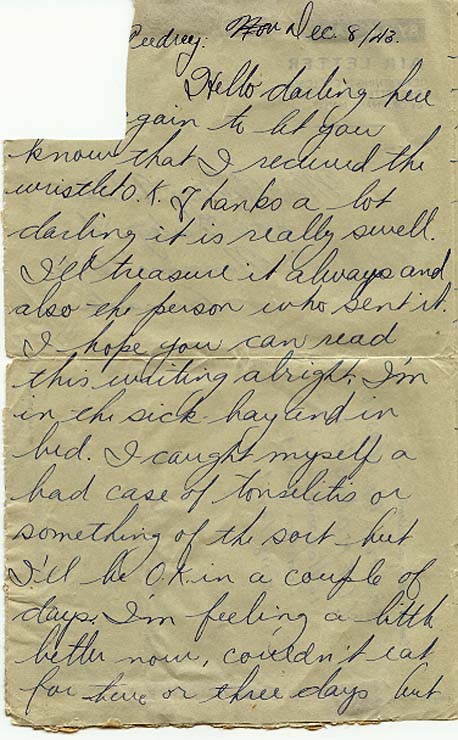 Nov Dec. 8/43.
Hello darling here
gain to let you
know that I received the
wristlet O.K. Thanks a lot
darling it is really swell.
I'll treasure it always and
also the person who sent it.
I hope you can read
this writing alright. I'm
in the sick bay and in
bed. I caught myself a
bad case of tonselitis or
something of the sort but
I'll be O.K. in a couple of
days. I'm feeling a little
better now, couldn't eat
for or three days but